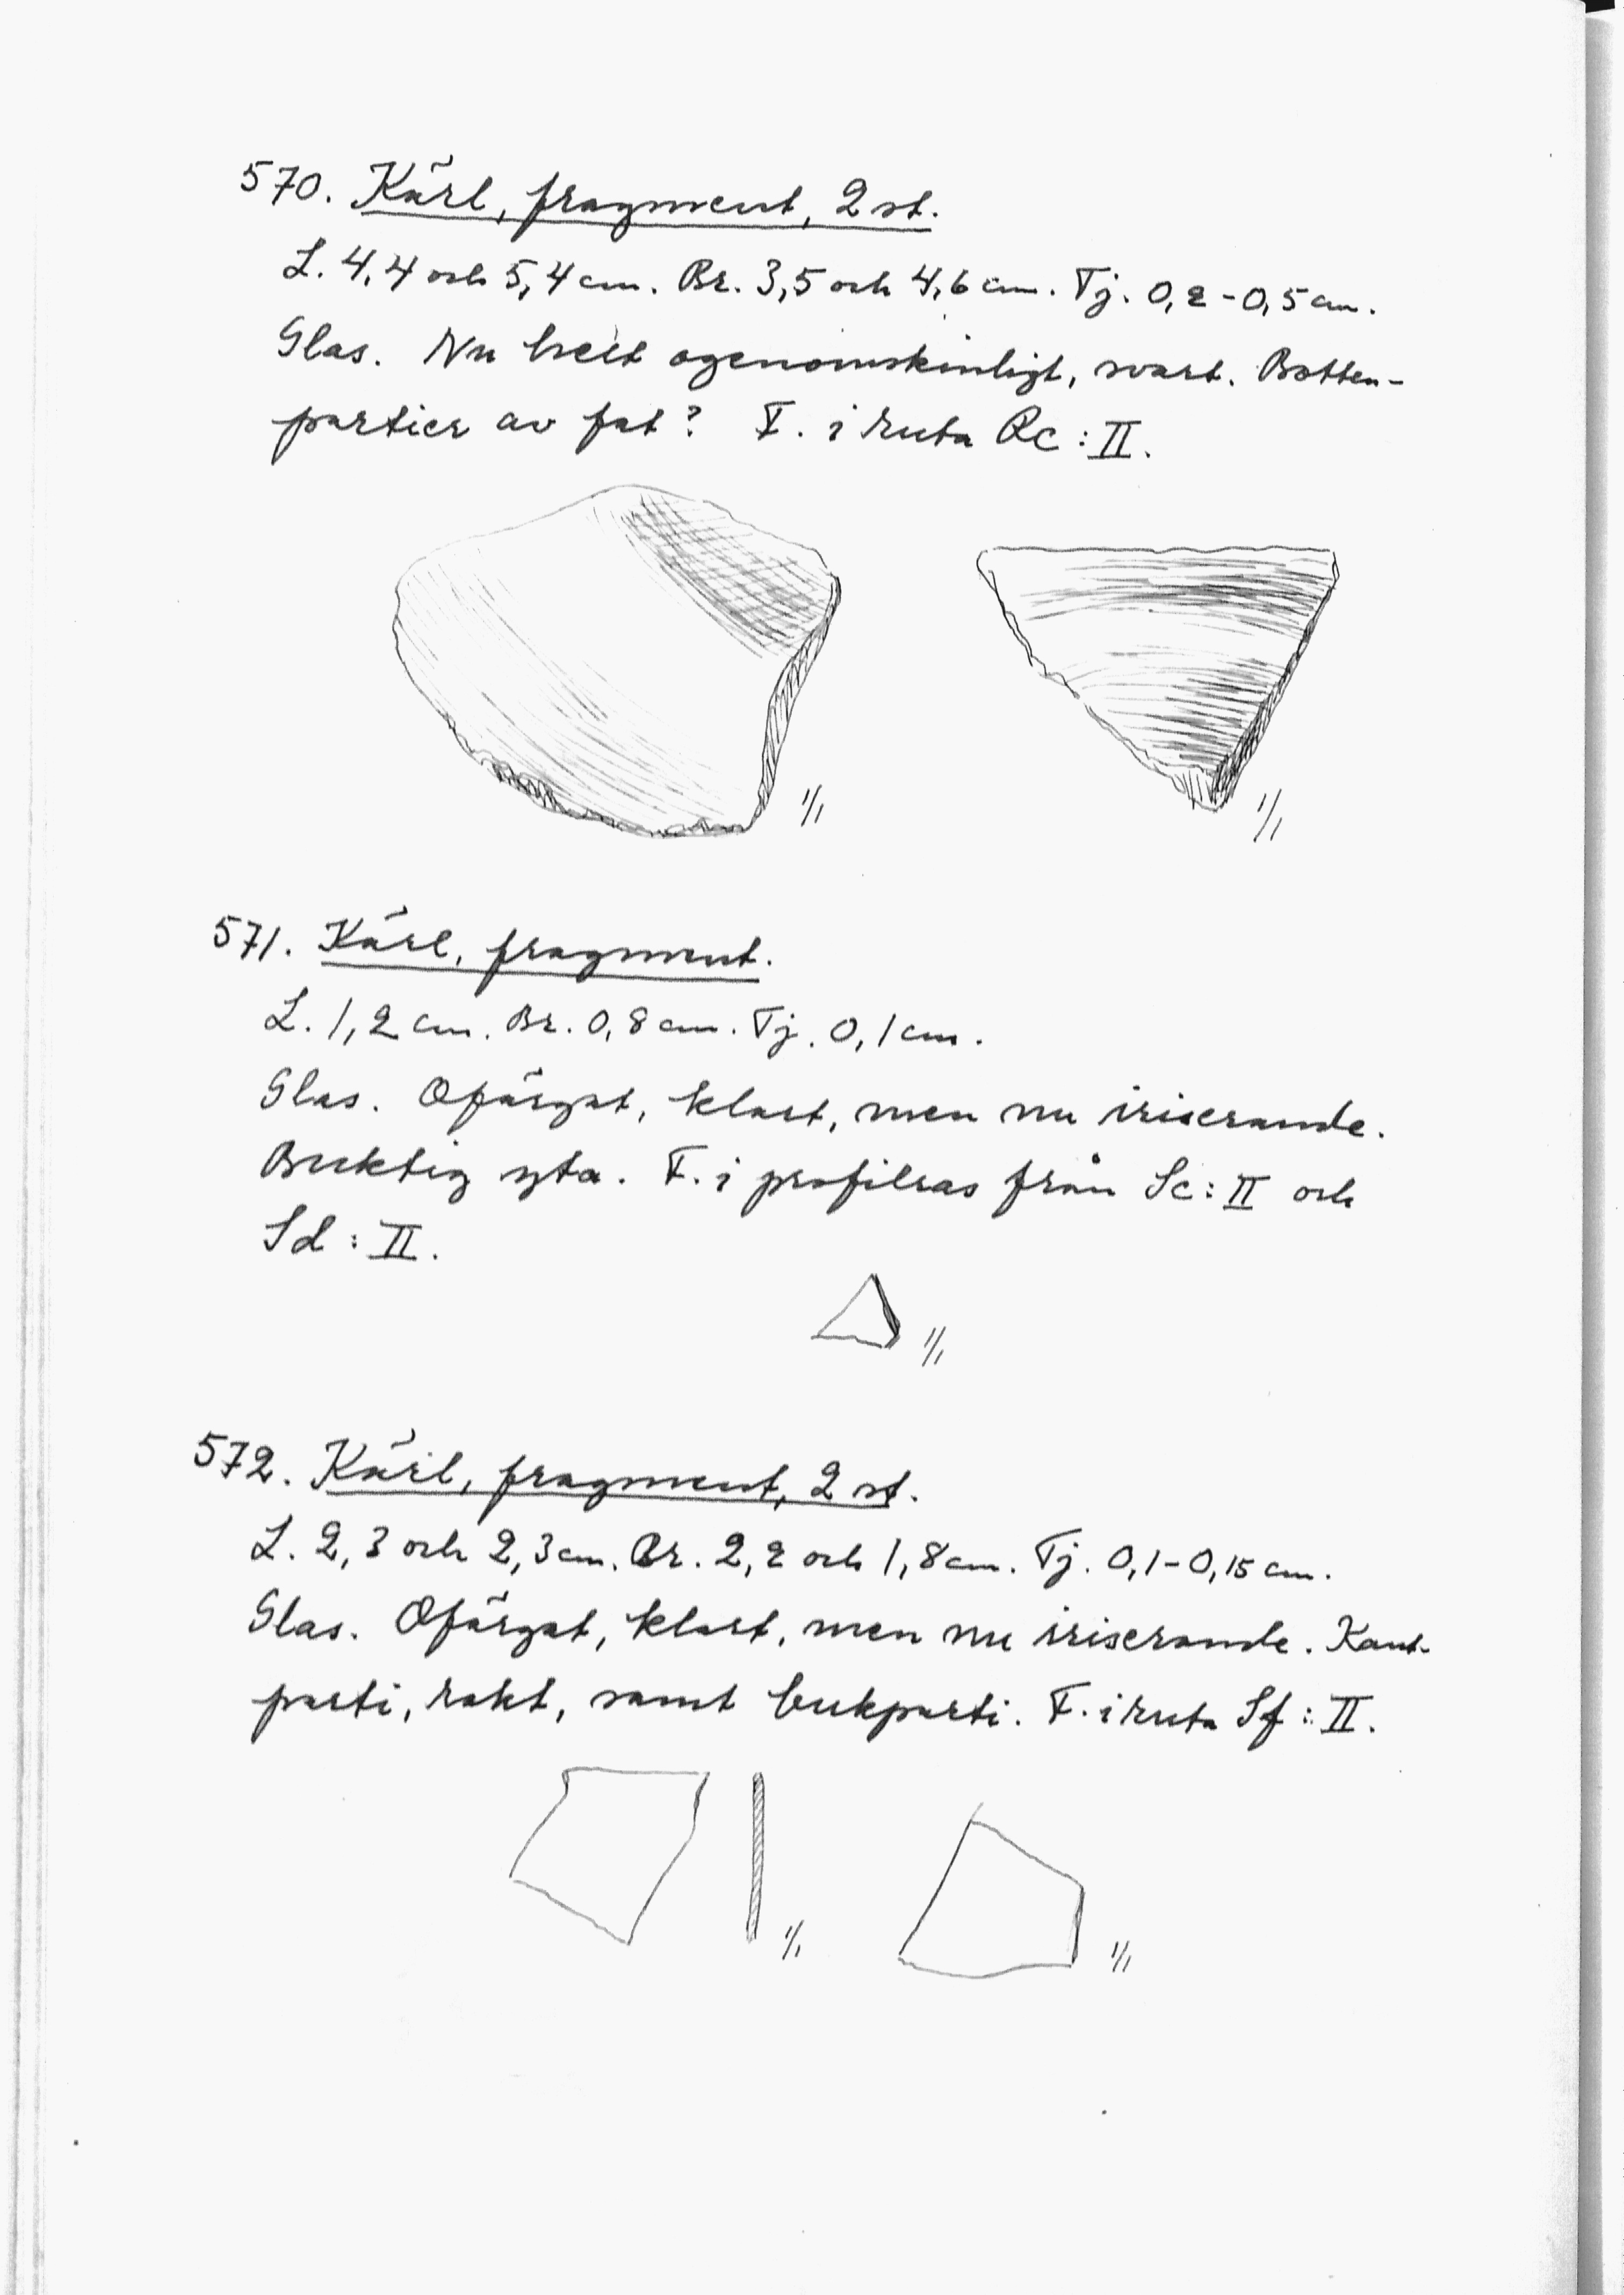 570. Kärl, fragment, 2 st.
L. 4,4 och 5,4 cm. Br. 3,5 och 4,6 cm. Tj. 0,2-0,5 cm.
Glas. Nu helt ogenomskinligt, svart. Botten-
partier av fat? F. i ruta Rc:II.
1/1 1/1
571. Kärl, fragment.
L. 1,2 cm. Br. 0,8 cm. Tj. 0,1 cm.
Glas. Ofärgat, klart, men nu iriserande.
Buktig yta. F. i profilras från Sc:II och
Sd:II.
1/1
572. Kärl, fragment, 2 st.
L. 2,3 och 2,3 cm. Br. 2,2 och 1,8 cm. Tj. 0,1-0,15 cm.
Glas. Ofärgat, klart, men nu iriserande. Kant-
parti, rakt, samt bukparti. F. i ruta Sf:II.
1/1 1/1